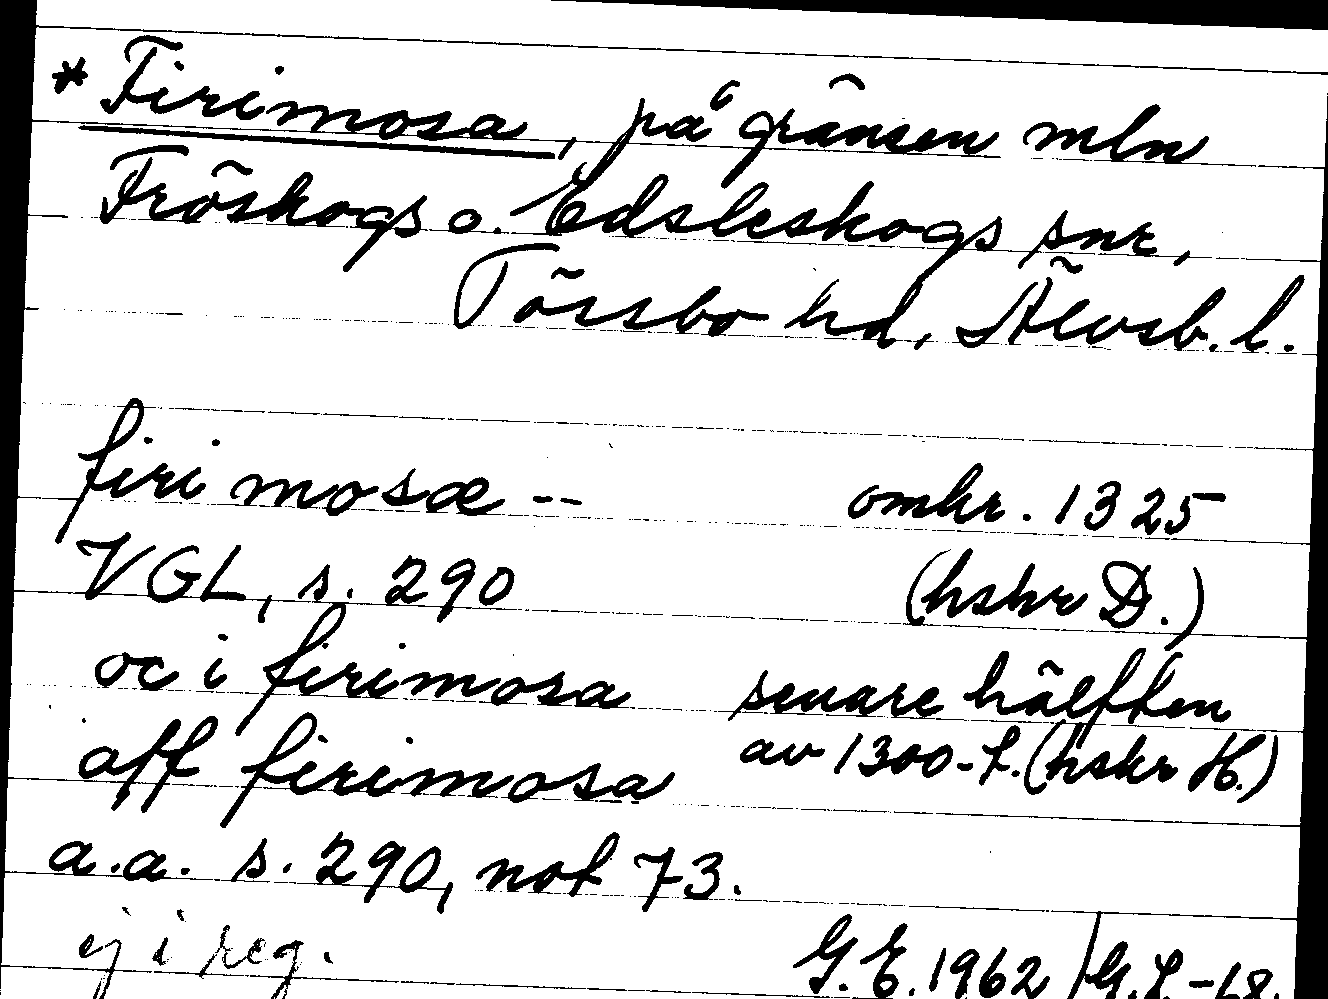 * Firimosa, på gränsen mln
Fröskogs o. Edsleskogs snr,
Tössbo hd, Älvsb. l.
firi mosæ -- omkr. 1325
VGL, s. 290 (hskr D.)
oc i firimosa senare hälften
aff firimosa av 1300-t. (hskr H.)
a.a. s. 290, not 73.
ej i reg. G.E. 1962 / G.L. -68.